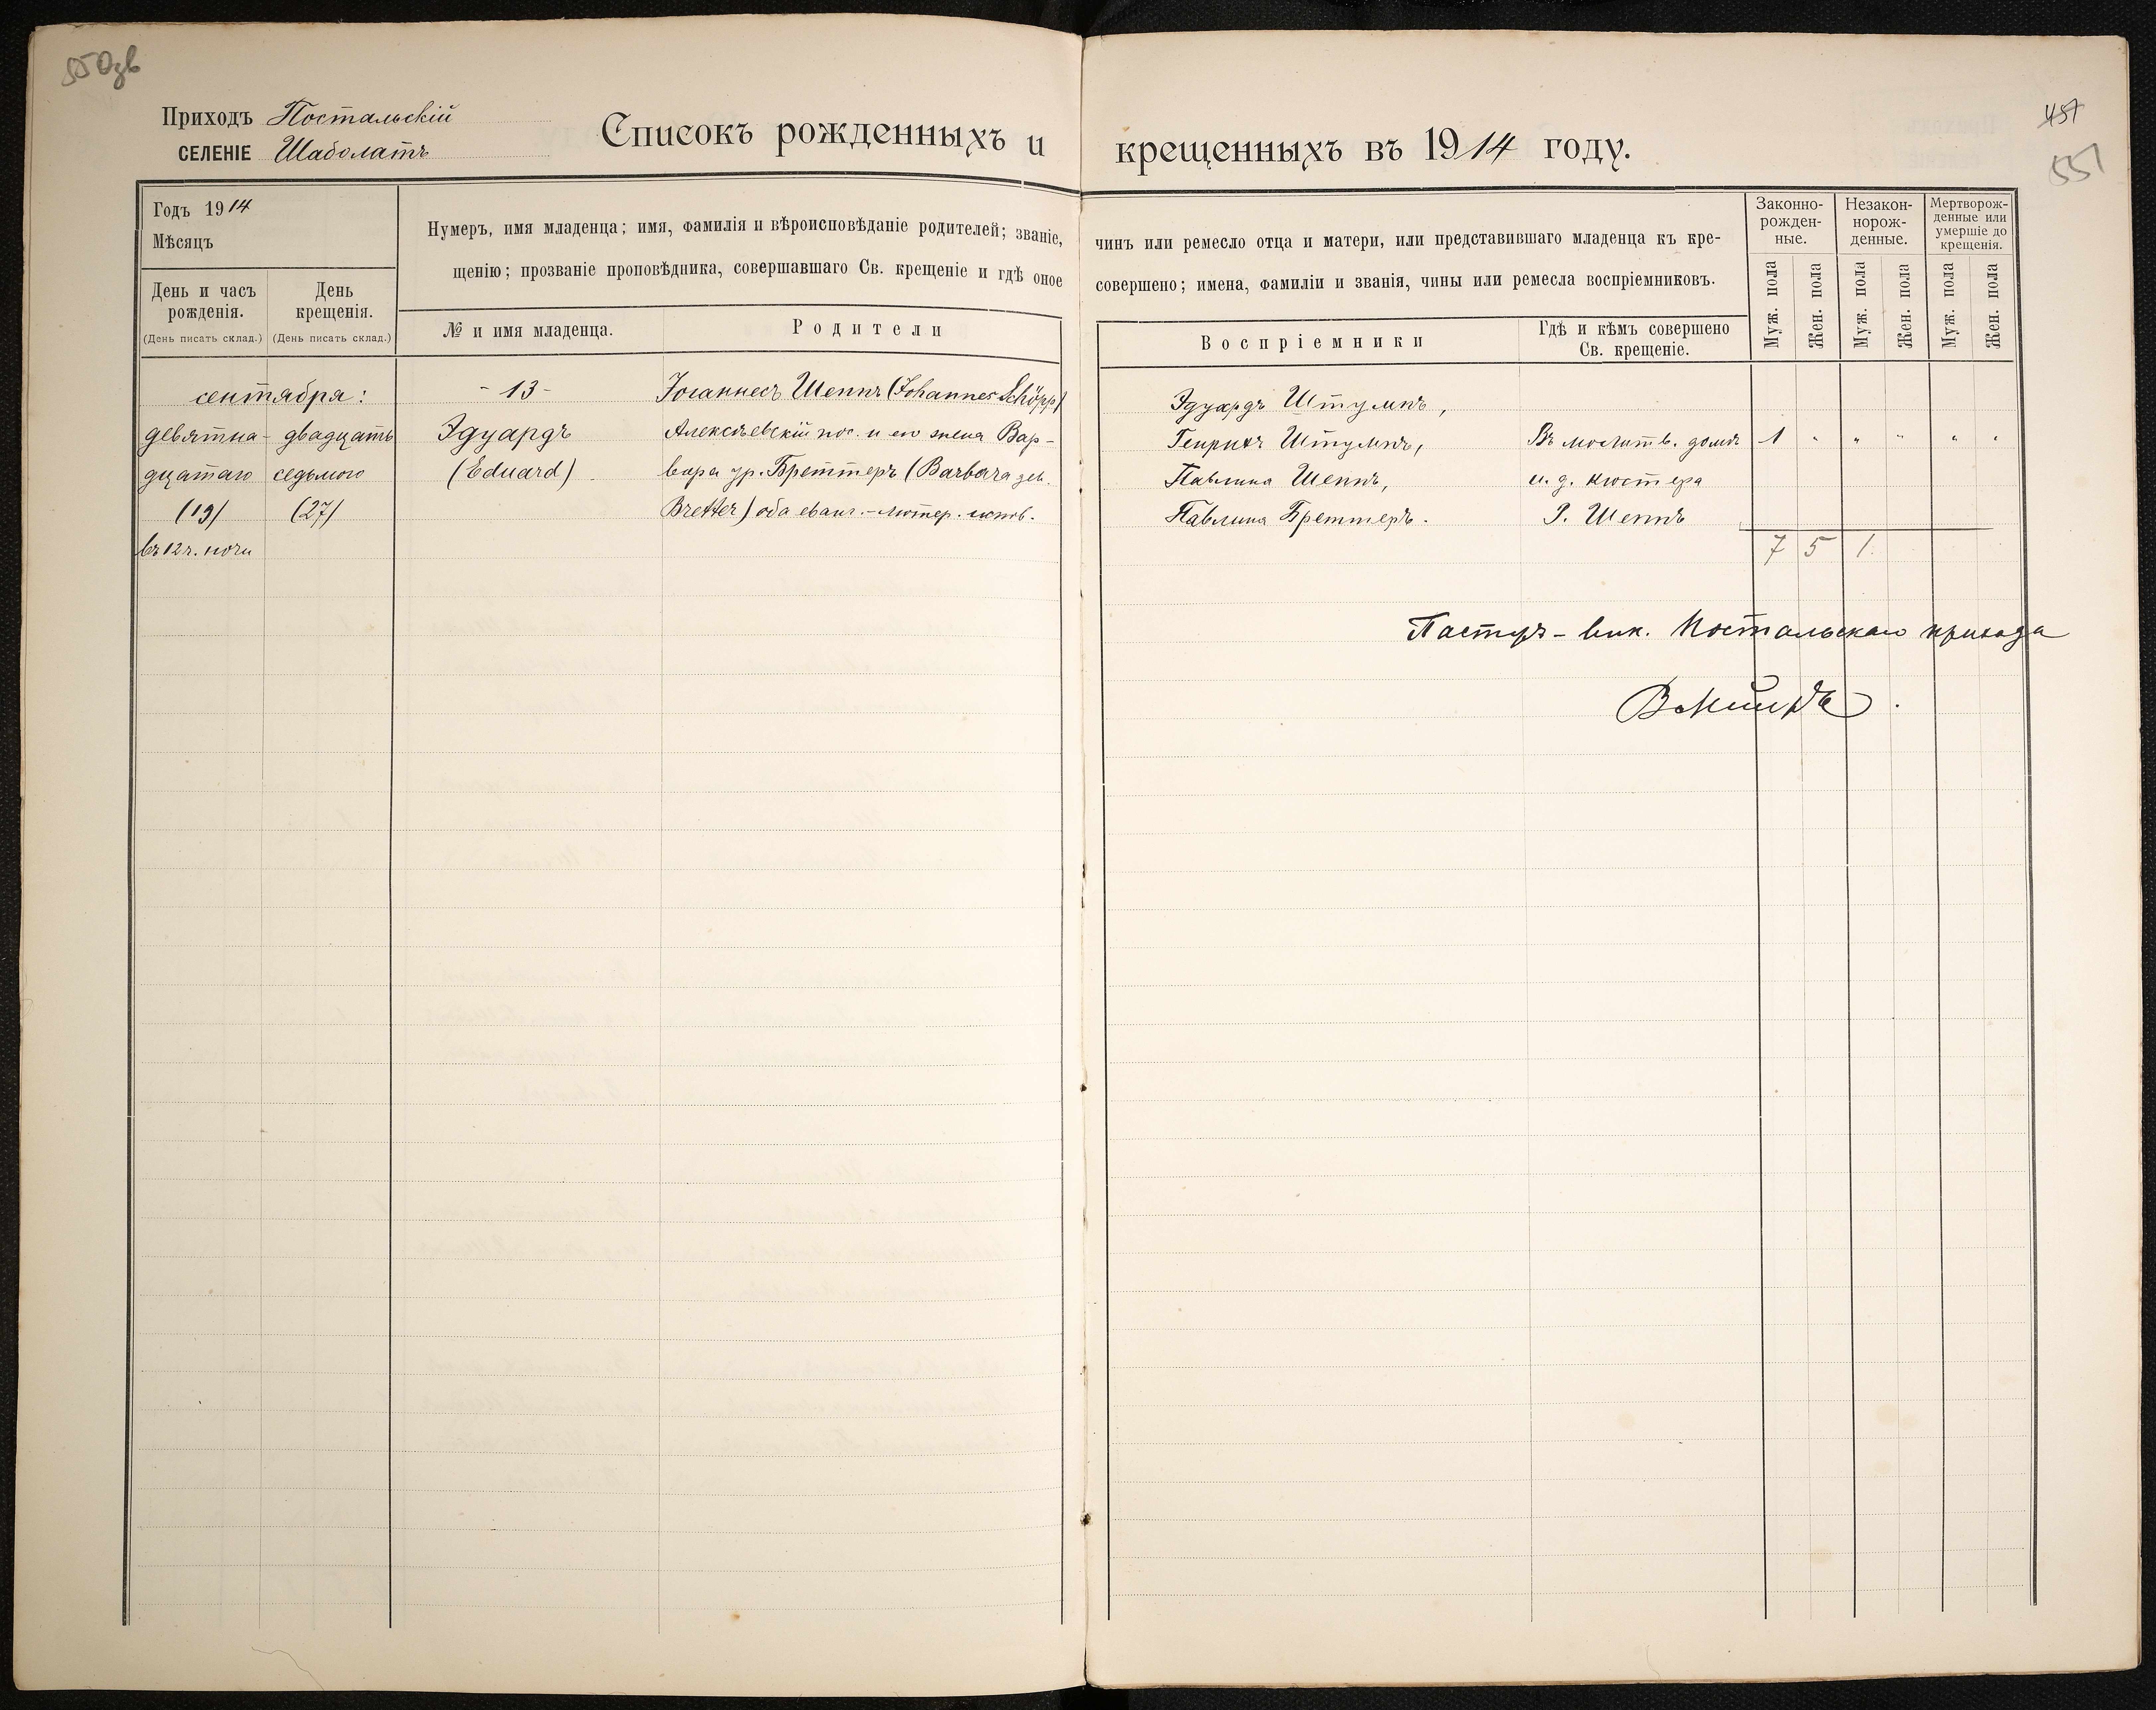 550зв
Приходъ Постальскій
СЕЛЕНІЕ Шаболатъ
Списокъ рожденныхъ и
Годъ 1914
Мѣсяцъ
День и часъ рожденія.
(День писать склад.)
День крещенія.
(День писать склад.)
Нумеръ, имя младенца; имя, фамилія и вѣроисповѣданіе родителей; званіе,
щенію; прозваніе проповѣдника, совершавшаго Св. крещеніе и гдѣ оное
№ и имя младенца.
Родители
сентября:
девятна-
дцатаго
(19)
въ 12 ч. ночи
двадцать
седьмого
(27)
- 13 -
Эдуардъ
(Eduard)
Іоганнесъ Шеппъ (Johannes Schöpp)
Алексѣевскій пос. и его жена Вар-
вара ур. Бреттеръ (Barbara geb.
Bretter) оба еванг.-лютер. испов.
457
551
крещенныхъ въ 1914 году.
чинъ или ремесло отца и матери, или представившаго младенца къ кре-
совершено; имена, фамиліи и званія, чины или ремесла воспріемниковъ.
Воспріемники
Гдѣ и кѣмъ совершено
Св. крещеніе.
Законно-
рожден-
ные.
Незакон-
норож-
денные.
Мертворож-
денные или
умершіе до
крещенія.
Муж. пола
Жен. пола
Муж. пола
Жен. пола
Муж. пола
Жен. пола
Эдуардъ Штумпъ,
Генрихъ Штумпъ,
Павлина Шеппъ,
Павлина Бреттеръ.
Въ молитв. домѣ
и. д. кюстера
Р. Шеппъ
1 " " " " "
7 5 1
Пасторъ-вик. Постальскаго прихода